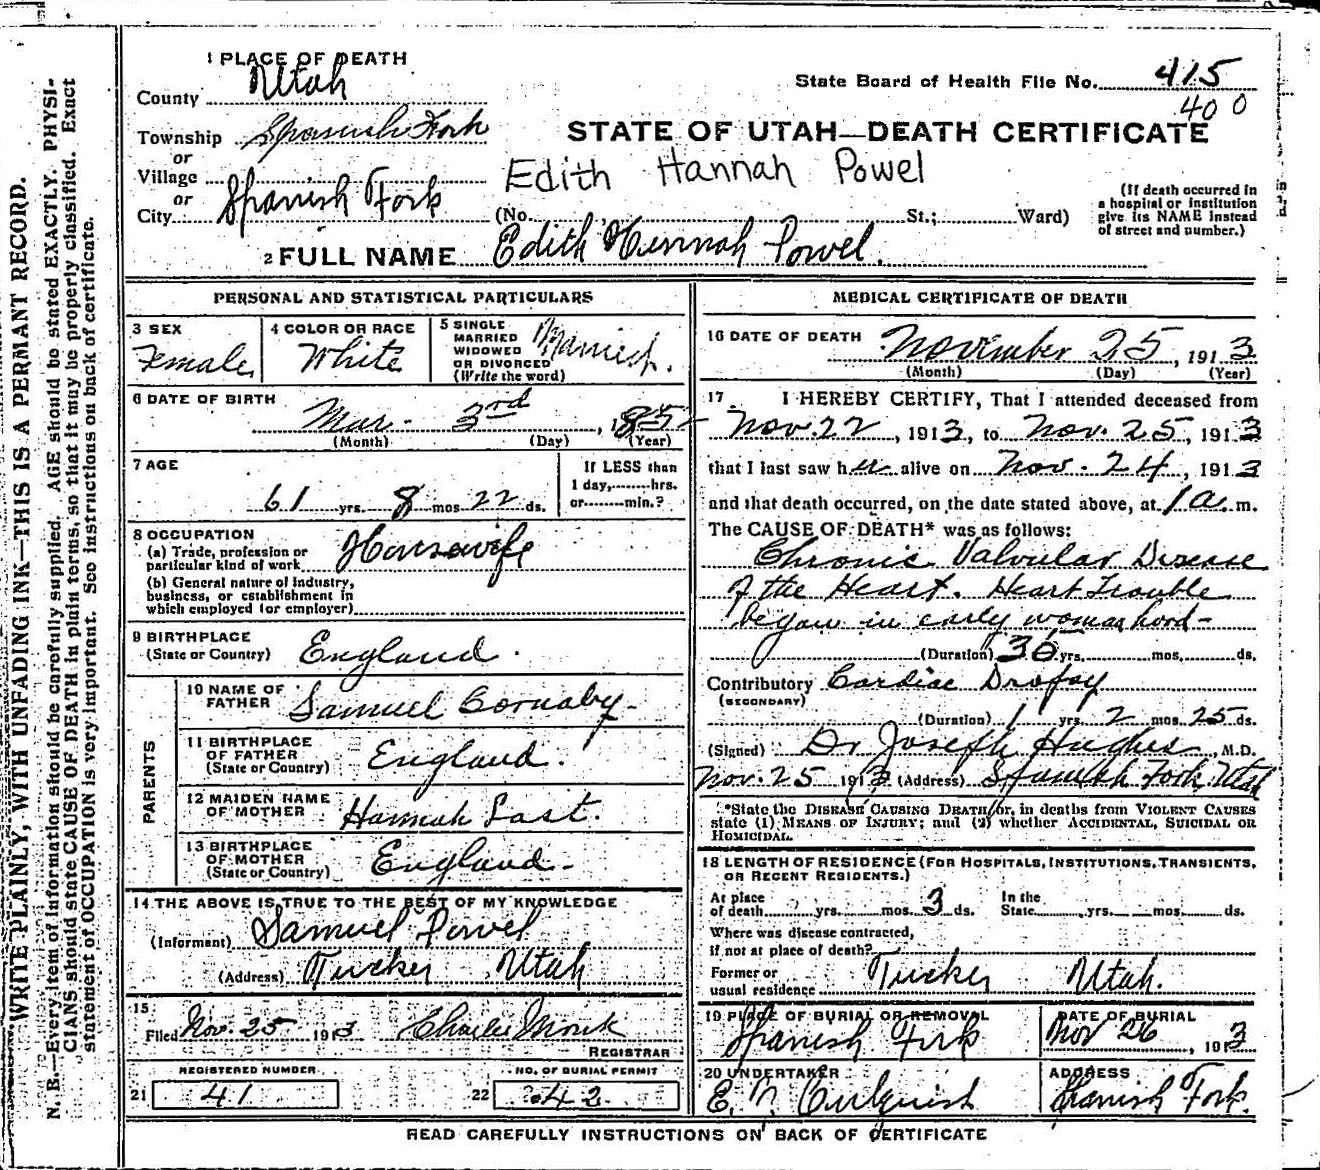 WRITE PLAINLY, WITH UNFADING INK—THIS IS A PERMANT RECORD.
N. B.—Every item of information should be carefully supplied. AGE should be stated EXACTLY. PHYSI-
CIANS should state CAUSE OF DEATH in plain terms, so that it may be properly classified. Exact
statement of OCCUPATION is very important. See instructions on back of certificate.
1 PLACE OF DEATH
County Utah
Township Spanish Fork
or
Village
or
City Spanish Fork
State Board of Health File No. 415
400
STATE OF UTAH—DEATH CERTIFICATE
Edith Hannah Powel
(No. St.; Ward)
(If death occurred in
a hospital or institution
give its NAME instead
of street and number.)
2 FULL NAME Edith Hennah Powel.
PERSONAL AND STATISTICAL PARTICULARS
3 SEX
Female
4 COLOR OR RACE
White
5 SINGLE
MARRIED
WIDOWED
OR DIVORCED
(Write the word)
Married.
6 DATE OF BIRTH
Mar. 3rd, 1852
(Month) (Day) (Year)
7 AGE
61 yrs. 8 mos. 22 ds.
If LESS than
1 day, hrs.
or min.?
8 OCCUPATION
(a) Trade, profession or
particular kind of work Housewife
(b) General nature of industry,
business, or establishment in
which employed (or employer)
9 BIRTHPLACE
(State or Country) England.
PARENTS
10 NAME OF
FATHER Samuel Cornaby
11 BIRTHPLACE
OF FATHER
(State or Country) England.
12 MAIDEN NAME
OF MOTHER Hannah Last.
13 BIRTHPLACE
OF MOTHER
(State or Country) England
14 THE ABOVE IS TRUE TO THE BEST OF MY KNOWLEDGE
(Informant) Samuel Powel
(Address) Tucker Utah
15
Filed Nov. 25 1913 Charlie Monk
REGISTRAR
REGISTERED NUMBER
21 41
NO. OF BURIAL PERMIT
22 42
MEDICAL CERTIFICATE OF DEATH
16 DATE OF DEATH
November 25, 1913
(Month) (Day) (Year)
17 I HEREBY CERTIFY, That I attended deceased from
Nov. 22, 1913, to Nov. 25, 1913
that I last saw her alive on Nov. 24, 1913
and that death occurred, on the date stated above, at 1 a. m.
The CAUSE OF DEATH* was as follows:
Chronic Valvular Disease
of the Heart. Heart Trouble
began in early womanhood-
(Duration) yrs. mos. ds.
Contributory Cardiac Dropsy
(SECONDARY)
(Duration) 1 yrs. 2 mos. 25 ds.
(Signed) Dr Joseph Hughes, M.D.
Nov. 25 1913 (Address) Spanish Fork, Utah
*State the DISEASE CAUSING DEATH, or, in deaths from VIOLENT CAUSES
state (1) MEANS OF INJURY; and (2) whether ACCIDENTAL, SUICIDAL OR
HOMICIDAL.
18 LENGTH OF RESIDENCE (FOR HOSPITALS, INSTITUTIONS, TRANSIENTS,
OR RECENT RESIDENTS.)
At place
of death yrs. mos. 3 ds.
In the
State yrs. mos. ds.
Where was disease contracted,
if not at place of death?
Former or
usual residence Tucker Utah.
19 PLACE OF BURIAL OR REMOVAL
Spanish Fork
DATE OF BURIAL
Nov 26, 1913
20 UNDERTAKER
E.
ADDRESS
Spanish Fork.
READ CAREFULLY INSTRUCTIONS ON BACK OF CERTIFICATE